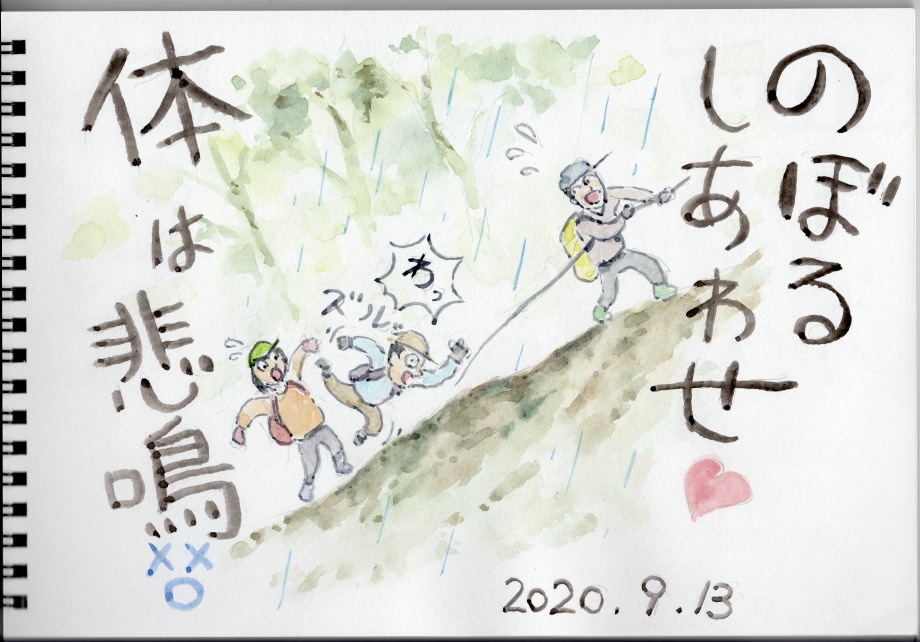 のぼる
しあわせ
体は悲鳴
わっ
ズルッ
2020.9.13